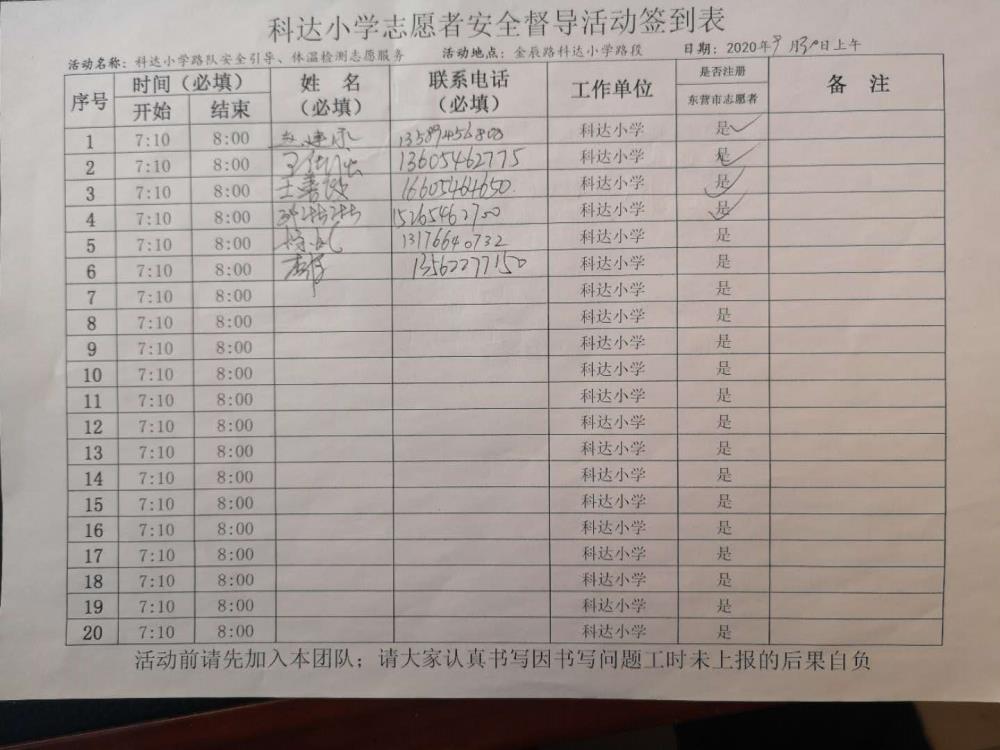 科达小学志愿者安全督导活动签到表
活动名称：科达小学路队安全引导、体温检测志愿服务 活动地点：金辰路科达小学路段 日期：2020年9月30日上午
序号 时间（必填） 姓 名（必填） 联系电话（必填） 工作单位 是否注册东营市志愿者 备 注
开始 结束
1 7:10 8:00 13589456808 科达小学 是✓
2 7:10 8:00 13605462775 科达小学 是✓
3 7:10 8:00 王善俊 16605464650 科达小学 是✓
4 7:10 8:00 15265462700 科达小学 是✓
5 7:10 8:00 13176640732 科达小学 是
6 7:10 8:00 13562277150 科达小学 是
7 7:10 8:00 科达小学 是
8 7:10 8:00 科达小学 是
9 7:10 8:00 科达小学 是
10 7:10 8:00 科达小学 是
11 7:10 8:00 科达小学 是
12 7:10 8:00 科达小学 是
13 7:10 8:00 科达小学 是
14 7:10 8:00 科达小学 是
15 7:10 8:00 科达小学 是
16 7:10 8:00 科达小学 是
17 7:10 8:00 科达小学 是
18 7:10 8:00 科达小学 是
19 7:10 8:00 科达小学 是
20 7:10 8:00 科达小学 是
活动前请先加入本团队；请大家认真书写因书写问题工时未上报的后果自负